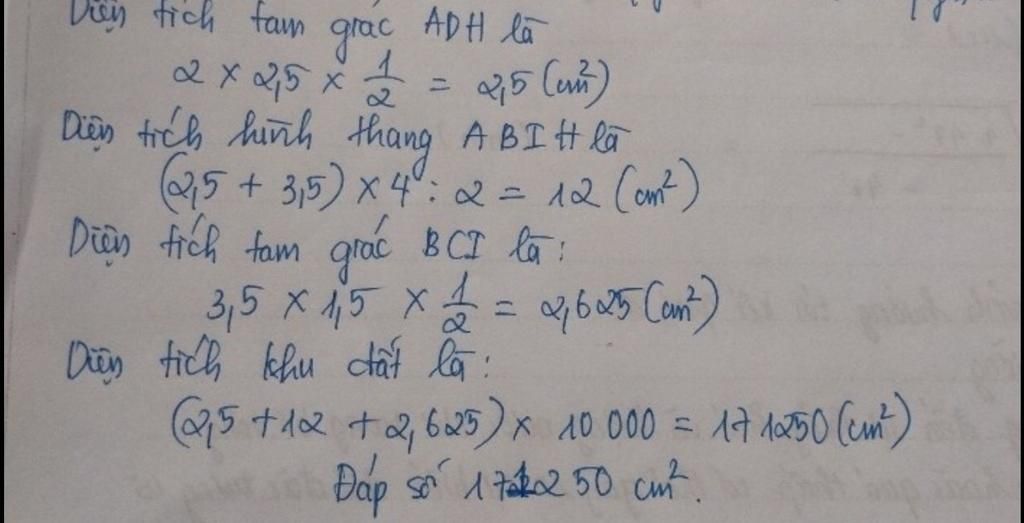 Diện tích tam giác ADH là
2 × 2,5 × 1/2 = 2,5 (cm²)
Diện tích hình thang ABIH là
(2,5 + 3,5) × 4 : 2 = 12 (cm²)
Diện tích tam giác BCI là:
3,5 × 1,5 × 1/2 = 2,625 (cm²)
Diện tích khu đất là:
(2,5 + 12 + 2,625) × 10 000 = 171250 (cm²)
Đáp số 171250 cm².